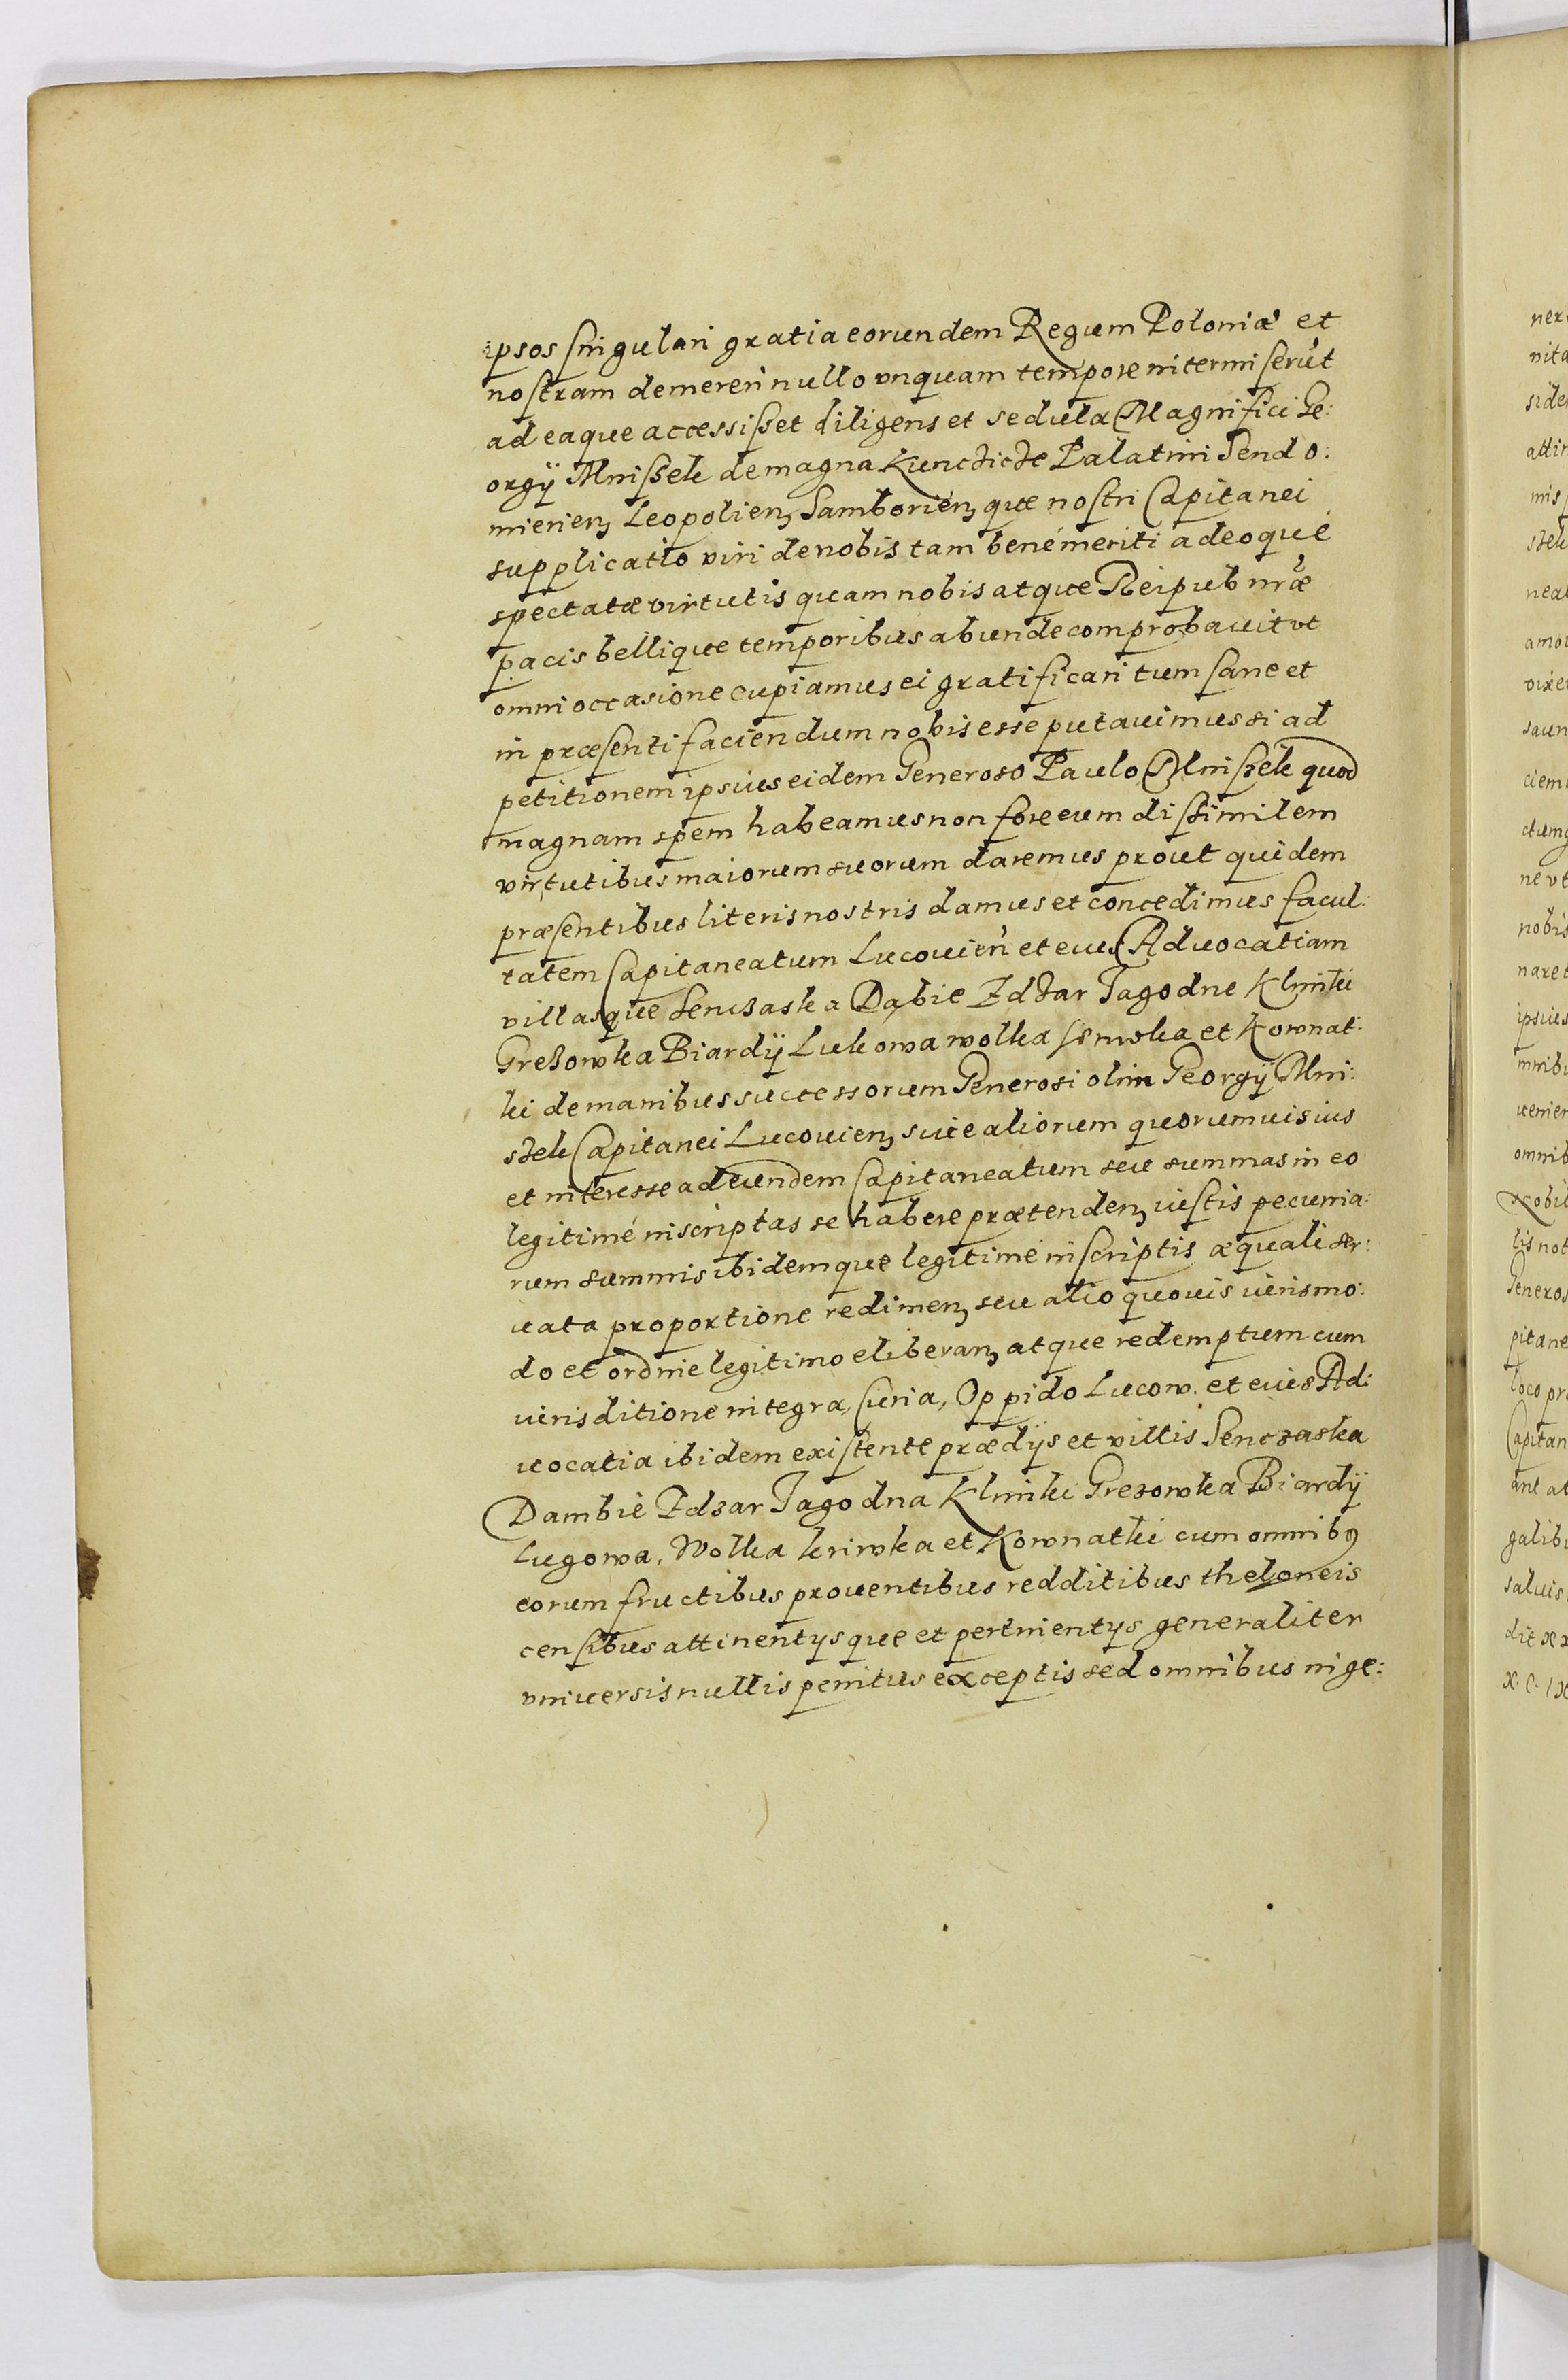 ipsos singulari gratia eorundem Regum Poloniæ et
nostram demereri nullo vnquam tempore intermiserũt
ad eaque accessisset diligens et sedula Magnifici Ge:
orgÿ Mnissek de magna Kunczicze Palatini Sendo:
mirienʒ Leopolienʒ Samborienʒque nostri Capitanei
supplicatio viri de nobis tam bené meriti adeoqué
spectatæ virtutis quam nobis atque Reipub nr̃æ
pacis bellique temporibus abunde comprobauit vt
omni occasione cupiamus ei gratificari tum sane et
in præsenti faciendum nobis esse putauimus si ad
petitionem ipsius eidem Generoso Paulo Mnissek quod
magnam spem habeamus non fore eum dissimilem
virtutibus maiorum suorum daremus prout quidem
præsentibus literis nostris damus et concedimus facul:
tatem Capitaneatum Lucouień et eius Aduocatiam
villasque Senczaska Dąbie Zdzar Jagodne Klimki
Grezowka Biardÿ Lukowa wolka et Kownat:
ki de manibus successorum Generosi olim Georgÿ Mni:
szek Capitanei Lucouienʒ siue aliorum quorumuis ius
et interesse ad eundem Capitaneatum seu summas in eo
legitimé inscriptas se habere prætendenʒ iustis pecunia:
rum summis ibidemque legitimé inscriptis æquali ser:
uata proportione redimenʒ seu alio quouis iuris mo:
do et ordine legitimo eliberanʒ atque redemptum cum
iurisditione integra, Curia, Oppido Lucow. et eius Ad:
uocatia ibidem existente prædijs et villis Senczaska
Dambie Zdzar Jagodna Klimki Grezowka Biardÿ
Lugowa, Wolka kriwka et Kownatki cum omnibꝰ
eorum fructibus prouentibus redditibus theloneis
censibus attinentysque et pertinentys generaliter
vniuersis nullis penitus exceptis sed omnibus in ge: